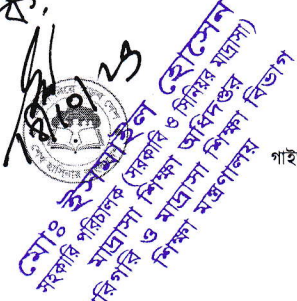 ১৮/১০/২৩
মোঃ ইসমাইল হোসেন
সহকারি পরিচালক (সরকারি ও সিনিয়র মাদ্রাসা)
মাদ্রাসা শিক্ষা অধিদপ্তর
রিগরি ও মাদ্রাসা শিক্ষা বিভাগ
শিক্ষা মন্ত্রণালয়
গাই